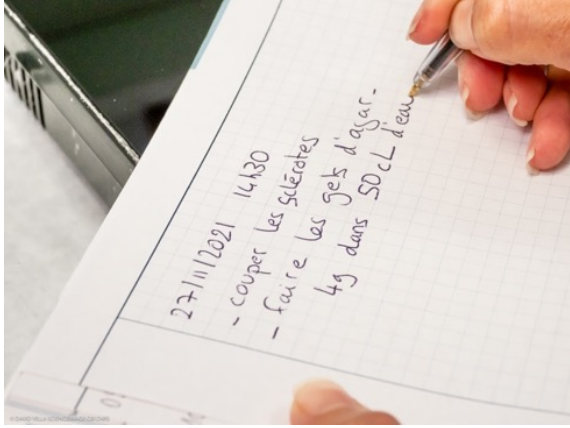 27/11/2021 14h30
- couper les sclérotes
- faire les gels d'agar -
4g dans 50cL d'eau